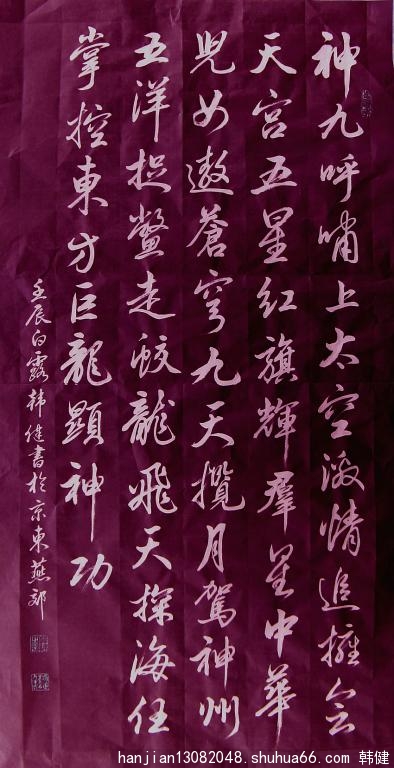 神九呼嘯上太空激情追擁会
天宫五星红旗輝羣星中華
兒女遨蒼穹九天攬月駕神州
五洋捉鱉走蛟龍飛天探海任
掌控東方巨龍顯神功
壬辰白露韩健書於京東燕郊
hanjian13082048.shuhua66.com 韩健